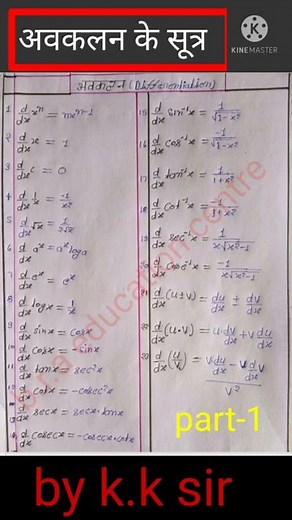 अवकलन के सूत्र
KINEMASTER
अवकलन (Differentiation)
1 d/dx xⁿ = nxⁿ⁻¹
2 d/dx x = 1
3 d/dx c = 0
4 d/dx 1/x = -1/x²
5 d/dx √x = 1/2√x
6 d/dx aˣ = aˣ loga
7 d/dx eˣ = eˣ
8 d/dx logx = 1/x
9 d/dx sinx = cosx
10 d/dx cosx = -sinx
11 d/dx tanx = sec²x
12 d/dx cotx = -cosec²x
13 d/dx secx = secx·tanx
14 d/dx cosecx = -cosecx·cotx
15 d/dx sin⁻¹x = 1/√1-x²
16 d/dx cos⁻¹x = -1/√1-x²
17 d/dx tan⁻¹x = 1/1+x²
18 d/dx cot⁻¹x = -1/1+x²
19 d/dx sec⁻¹x = 1/x√x²-1
20 d/dx cosec⁻¹x = -1/x√x²-1
21 d/dx (u±v) = du/dx ± dv/dx
22 d/dx (u·v) = u dv/dx + v du/dx
23 d/dx (u/v) = v du/dx - u dv/dx / v²
education centre
part-1
by k.k sir